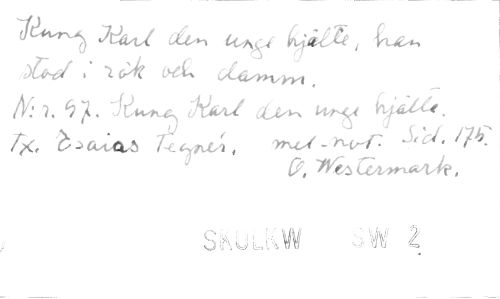 Kung Karl den unge hjälte, han
stod i rök och damm.
N:r. 97. Kung Karl den unge hjälte.
Tx. Esaias Tegnér. mel-not. Sid. 175.
O. Westermark.
SKULKW SW 2